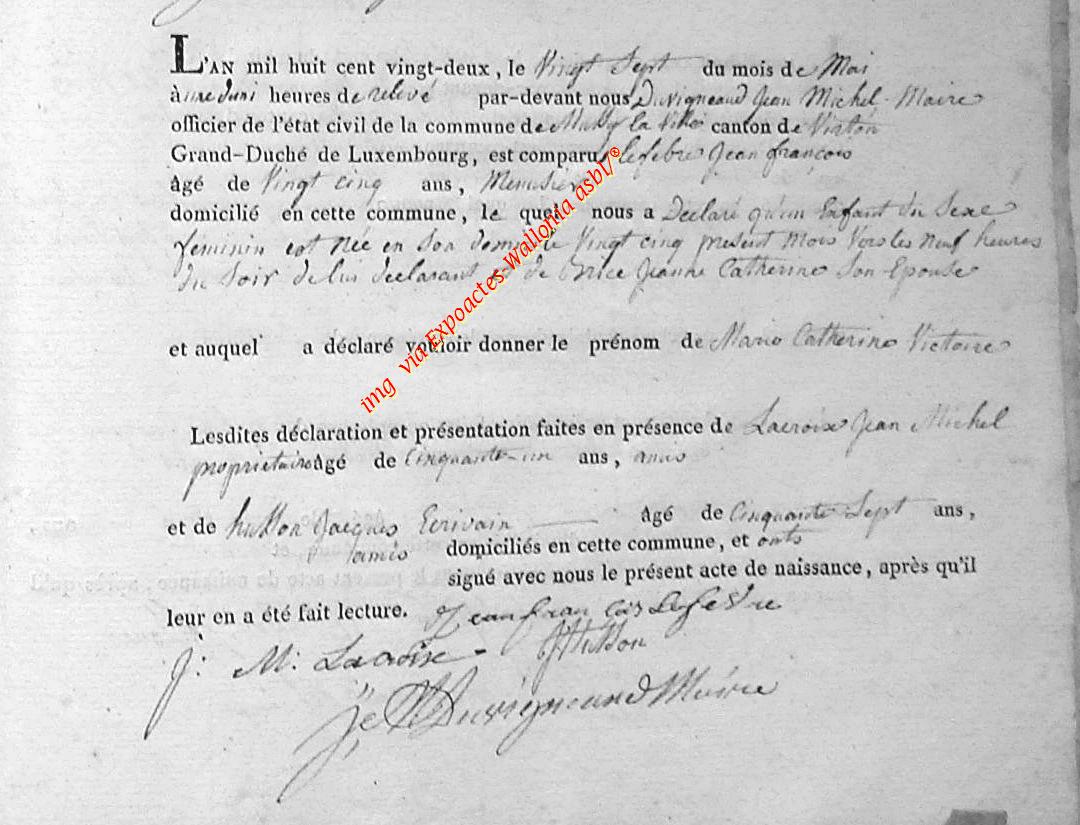 L'AN mil huit cent vingt-deux, le Vingt Sept du mois de Mai
à heures de relevé par-devant nous Duvigneaud Jean Michel Maire
officier de l'état civil de la commune de la Ville canton de Virton
Grand-Duché de Luxembourg, est comparu lefebre Jean françois
âgé de Vingt cinq ans, Menusier
domicilié en cette commune, le quel nous a Declaré qu'un Enfant du Sexe
féminin est née en Son le Vingt cinq present Mois Vers les Neuf heures
du Soir de lui declarant et de Brice Jeanne Catherine Son Epouse
et auquel a déclaré vouloir donner le prénom de Marie Catherine Victoire
Lesdites déclaration et présentation faites en présence de Lacroix Jean Michel
propriétaire âgé de Cinquante-un ans, amis
et de husson Jacques Ecrivain âgé de Cinquante Sept ans,
amis domiciliés en cette commune, et onts
signé avec nous le présent acte de naissance, après qu'il
leur en a été fait lecture. Jean fran çois Lefevre
J: M: Lacroix JHusson
Duvigneaud Maire
img via Expoactes-Wallonia asbl/®